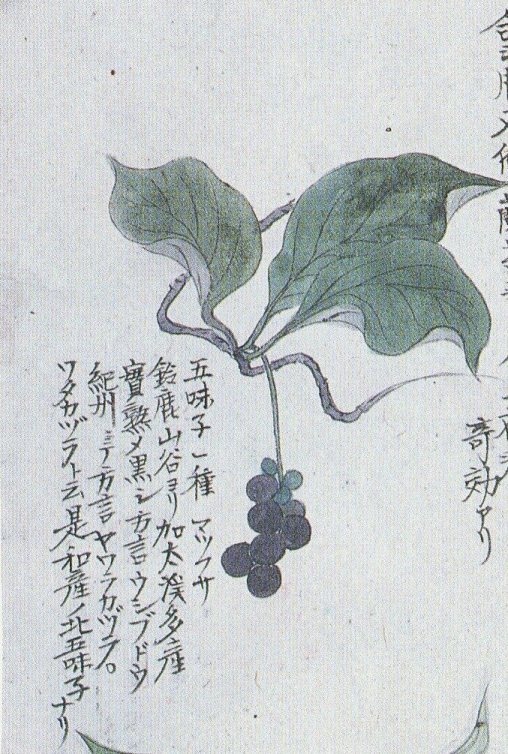 奇効アリ
五味子一種 マツフサ
鈴鹿山谷ヨリ加太溪多產
實熟メ黒シ方言ウシブドウ
紀州ニテ方言ヤワラカヅラ。
ワタカヅラト云是和產ノ北五味子ナリ